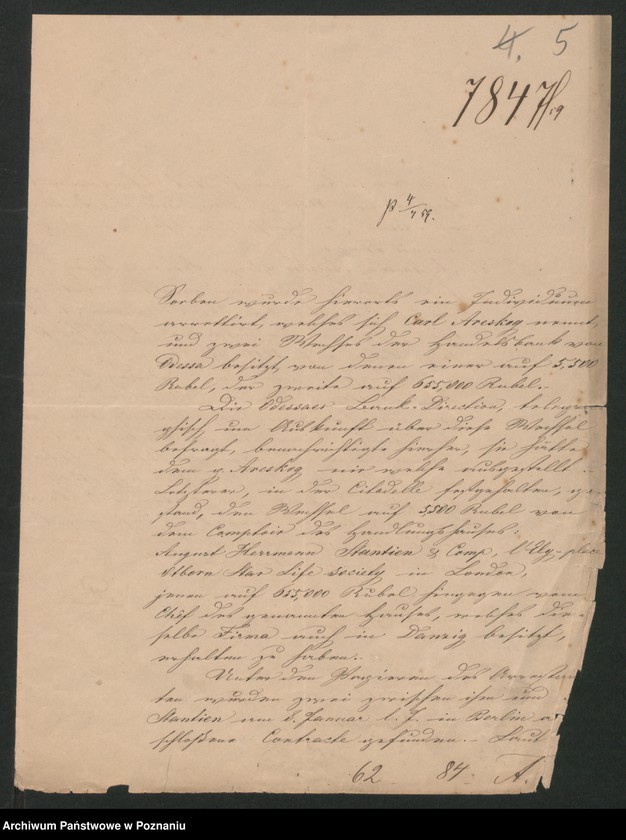 4. 5
7847
Soeben wurde hierorts ein Individuum
arretirt, welches sich Carl Areskog nennt,
und zwei Wechsel der Handelsbank von
Odessa besitzt, von denen einer auf 5,500
Rubel, der zweite auf 655,000 Rubel.-
Die Odessaer Bank-Direction, telegra-
phisch um Auskunft über diese Wechsel
befragt, benachrichtigte hierher, sie hätte
dem p. Areskog nie welche ausgestellt.-
Letzterer, in der Citadelle festgehalten, ge-
stand, den Wechsel auf 5,500 Rubel von
dem Comptoir des Handlungshauses:
August Herrmann Stantien & Comp, place
Star Life society in London,
jenen auf 655,000 Rubel hingegen vom
Chef des genannten Hauses, welches die-
selbe Firma auch in Danzig besitzt,
erhalten zu haben.-
Unter den Papieren des Arrestan-
ten wurden zwei zwischen ihm und
Stantien am 8. Januar l. J. in Berlin a
schloßene Contracte gefunden.- Laut
62 84 A.
Archiwum Państwowe w Poznaniu